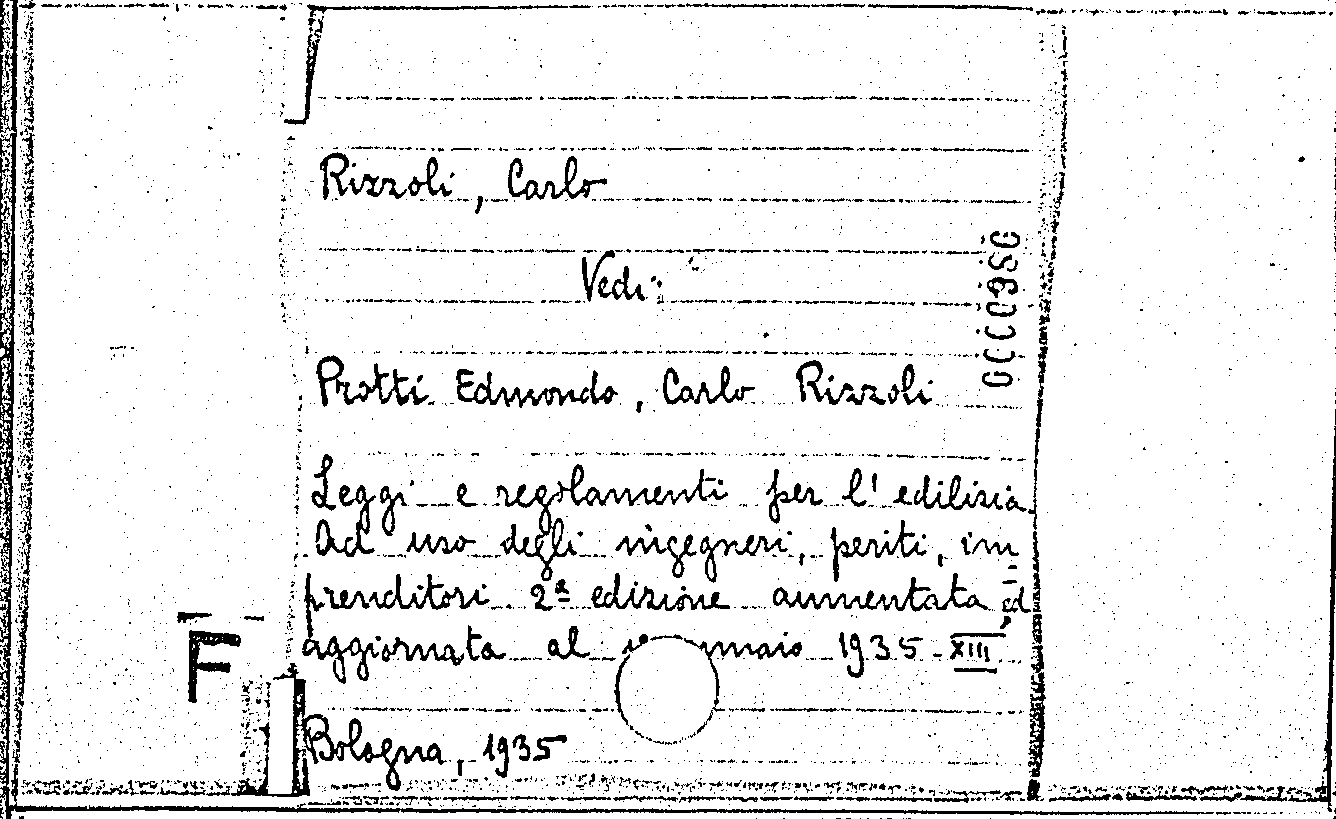 Rizzoli, Carlo
Vedi:
Protti Edmondo, Carlo Rizzoli
Leggi e regolamenti per l'edilizia.
Ad uso degli ingegneri, periti, im
prenditori 2ª edizione aumentata, ed
aggiornata al 1° 1935 - XIII
Bologna, 1935
F